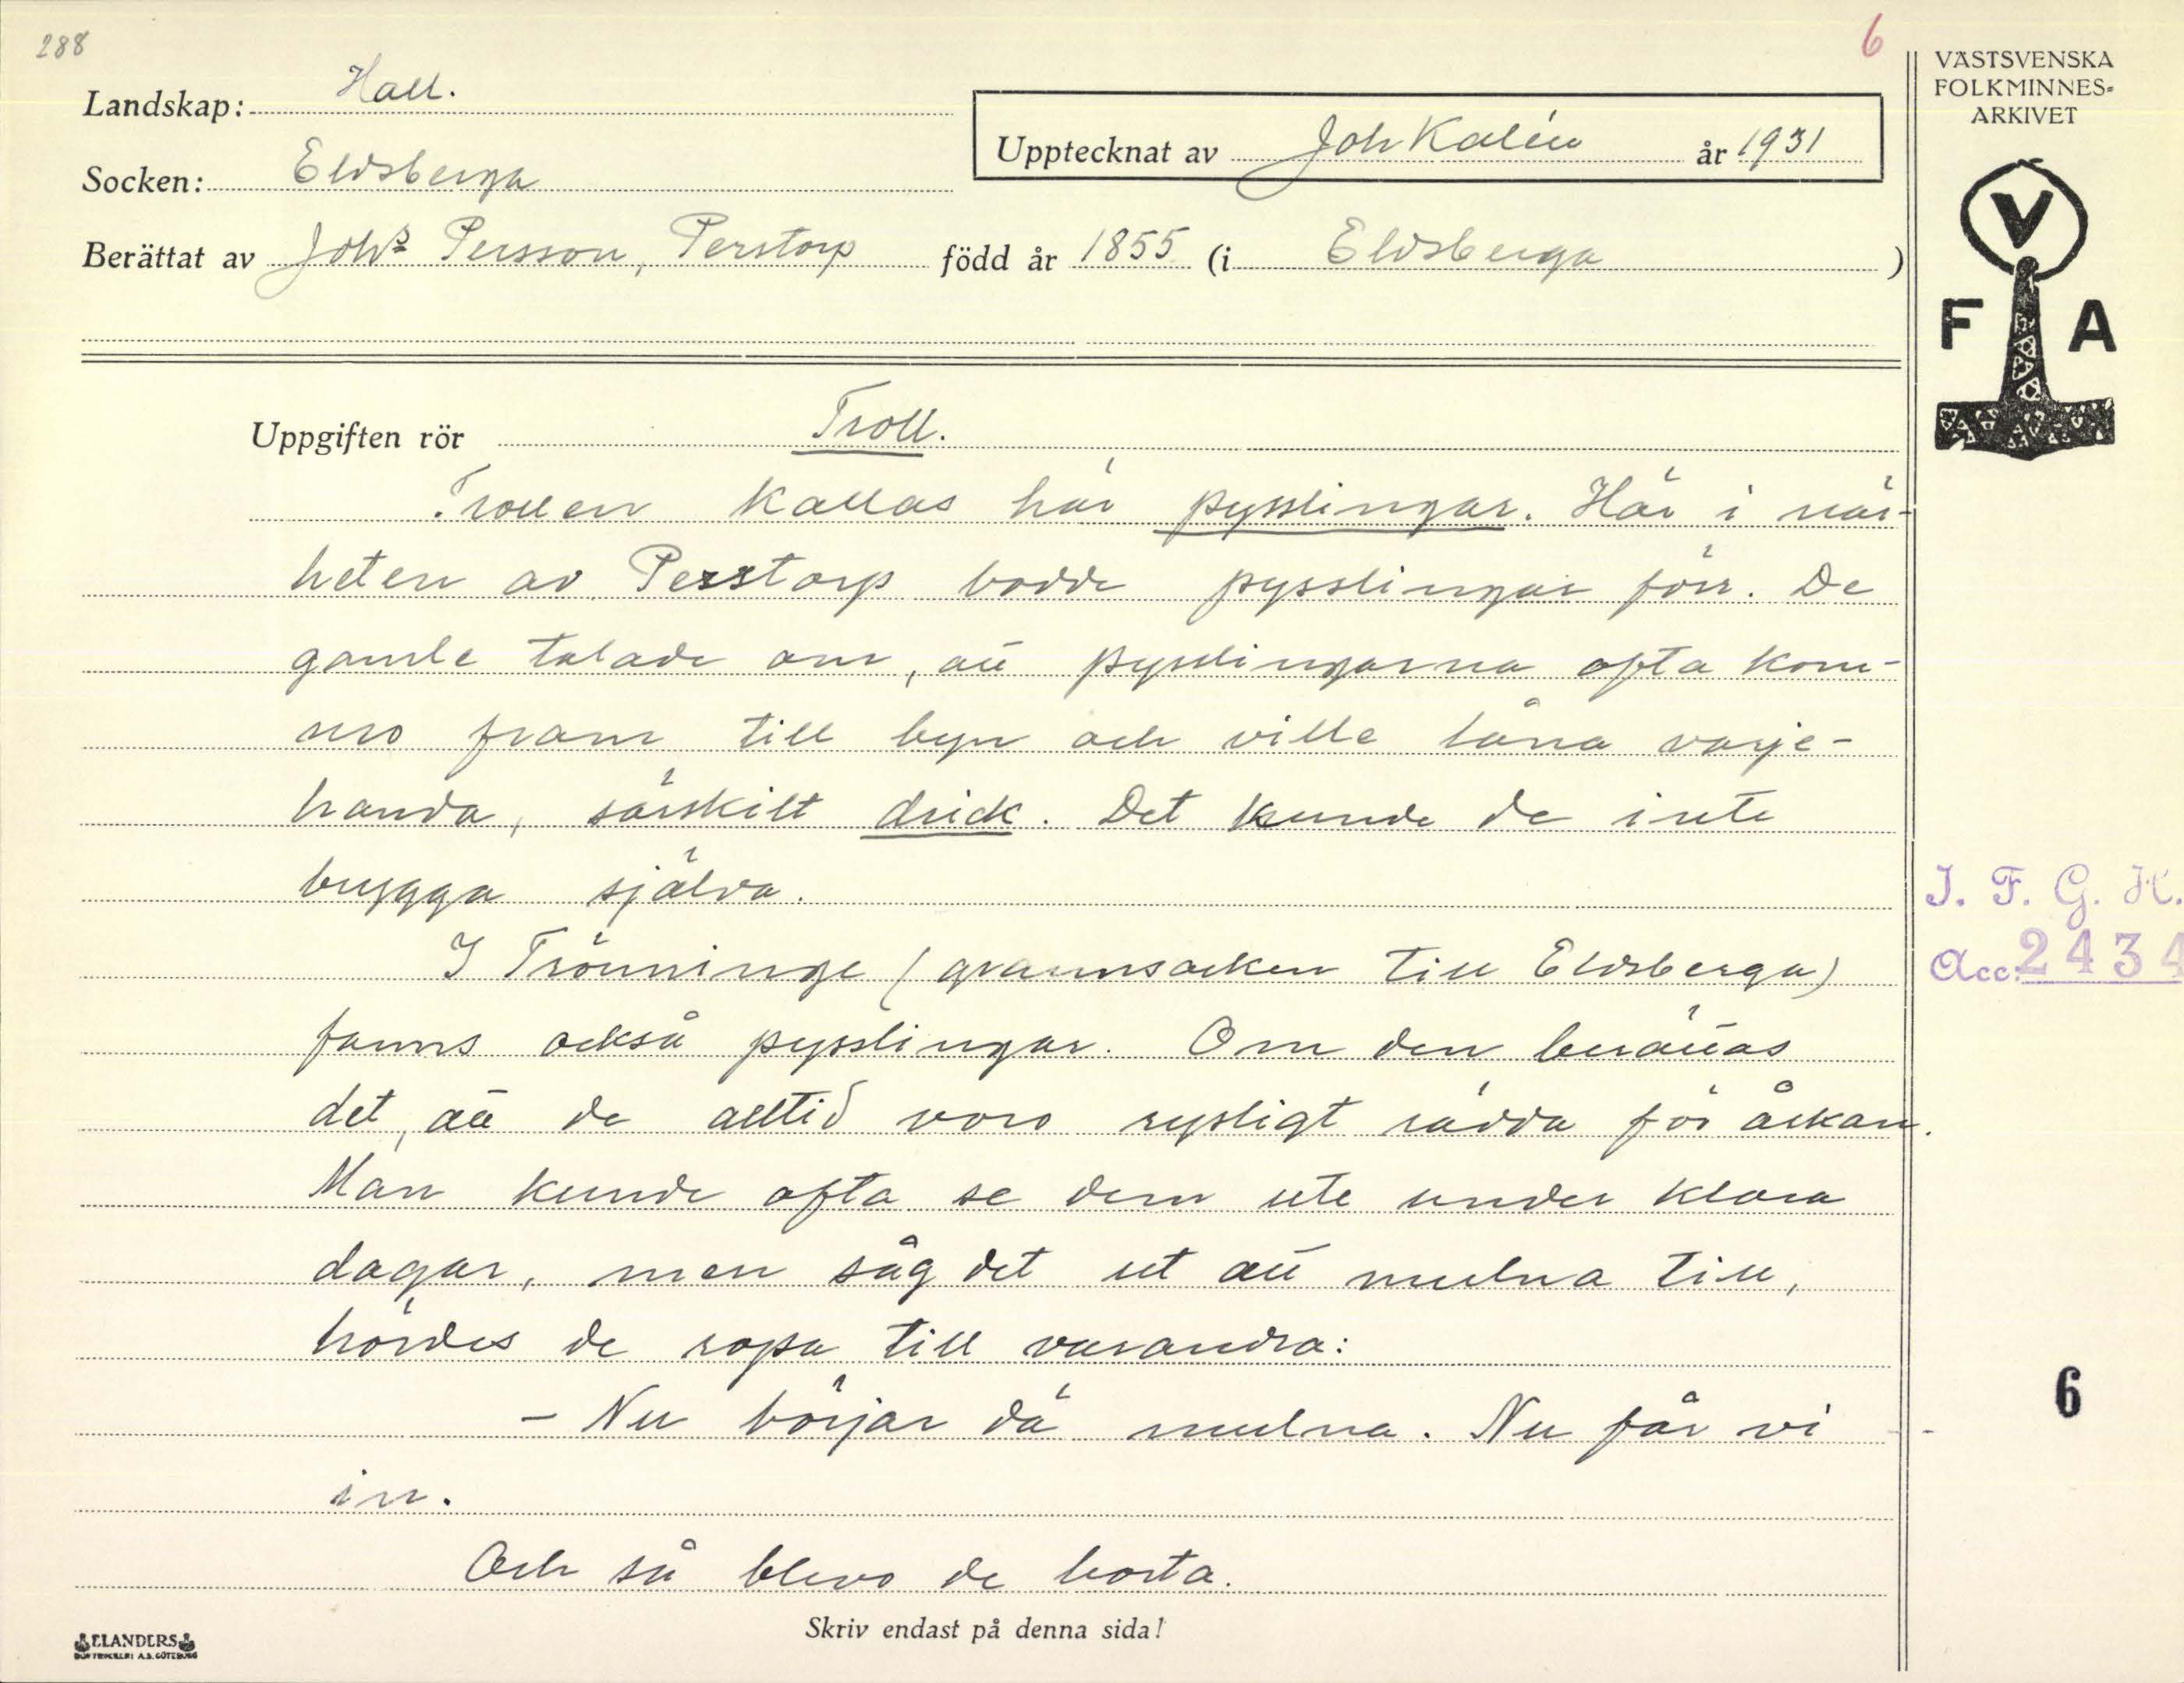 288
6
Landskap: Hall.
Socken: Eldsberga
Upptecknat av Joh Kalén år 1931
Berättat av Johs Persson, Perstorp född år 1855 (i Eldsberga )
VÄSTSVENSKA
FOLKMINNES-
ARKIVET
V
F A
Uppgiften rör Troll.
Trollen kallas här pysslingar. Här i när-
heten av Perstorp bodde pysslingar förr. De
gamle talade om, att pysslingarna ofta kom-
mo fram till byn och ville låna varje-
handa, särskilt drick. Det kunde de inte
brygga själva.
I Trönninge (grannsocken till Eldsberga)
fanns också pysslingar. Om den berättas
det, att de alltid voro rysligt rädda för åskan.
Man kunde ofta se dem ute under klara
dagar, men såg det ut att mulna till,
hördes de ropa till varandra:
- Nu börjar dä mulna. Nu får vi
in.
Och så blevo de borta.
I. F. G. H.
Acc: 2434
6
Skriv endast på denna sida!
ELANDERS
BOKTRYCKERI A.B. GÖTEBORG